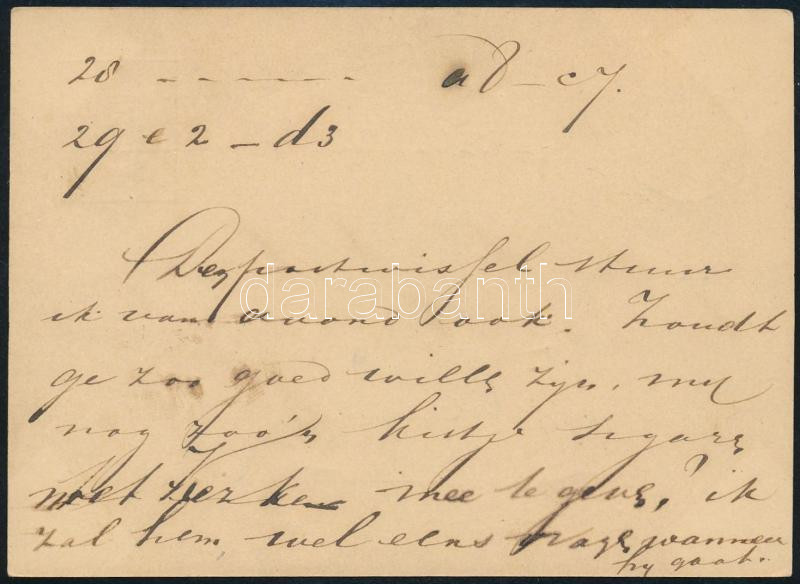 28 - - - - - - a8 - c7.
29 e2 - d3
Den postwissel stuur
ik van avond ook. Zoudt
ge zoo goed willen zijn, mij
nog zoo'n kistje sigaren
met mee te geven, ik
zal hem wel eens vragen wanneer
hij gaat.
darabanth